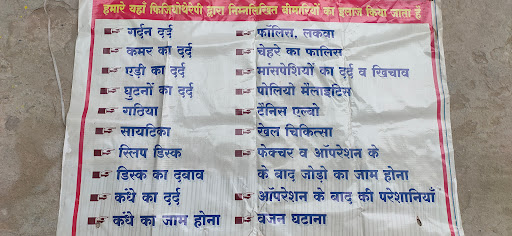 हमारे यहाँ फिजियोथैरेपी द्वारा निम्नलिखित बीमारियों का इलाज किया जाता है
गर्दन दर्द
कमर का दर्द
एड़ी का दर्द
घुटनों का दर्द
गठिया
सायटिका
स्लिप डिस्क
डिस्क का दबाव
कंधे का दर्द
कंधे का जाम होना
फॉलिस, लकवा
चेहरे का फालिस
मांसपेशियों का दर्द व खिचाव
पोलियो मैलाइटिस
टैनिस एल्वो
खेल चिकित्सा
फेक्चर व ऑपरेशन के
के बाद जोड़ो का जाम होना
ऑपरेशन के बाद की परेशानियाँ
वजन घटाना